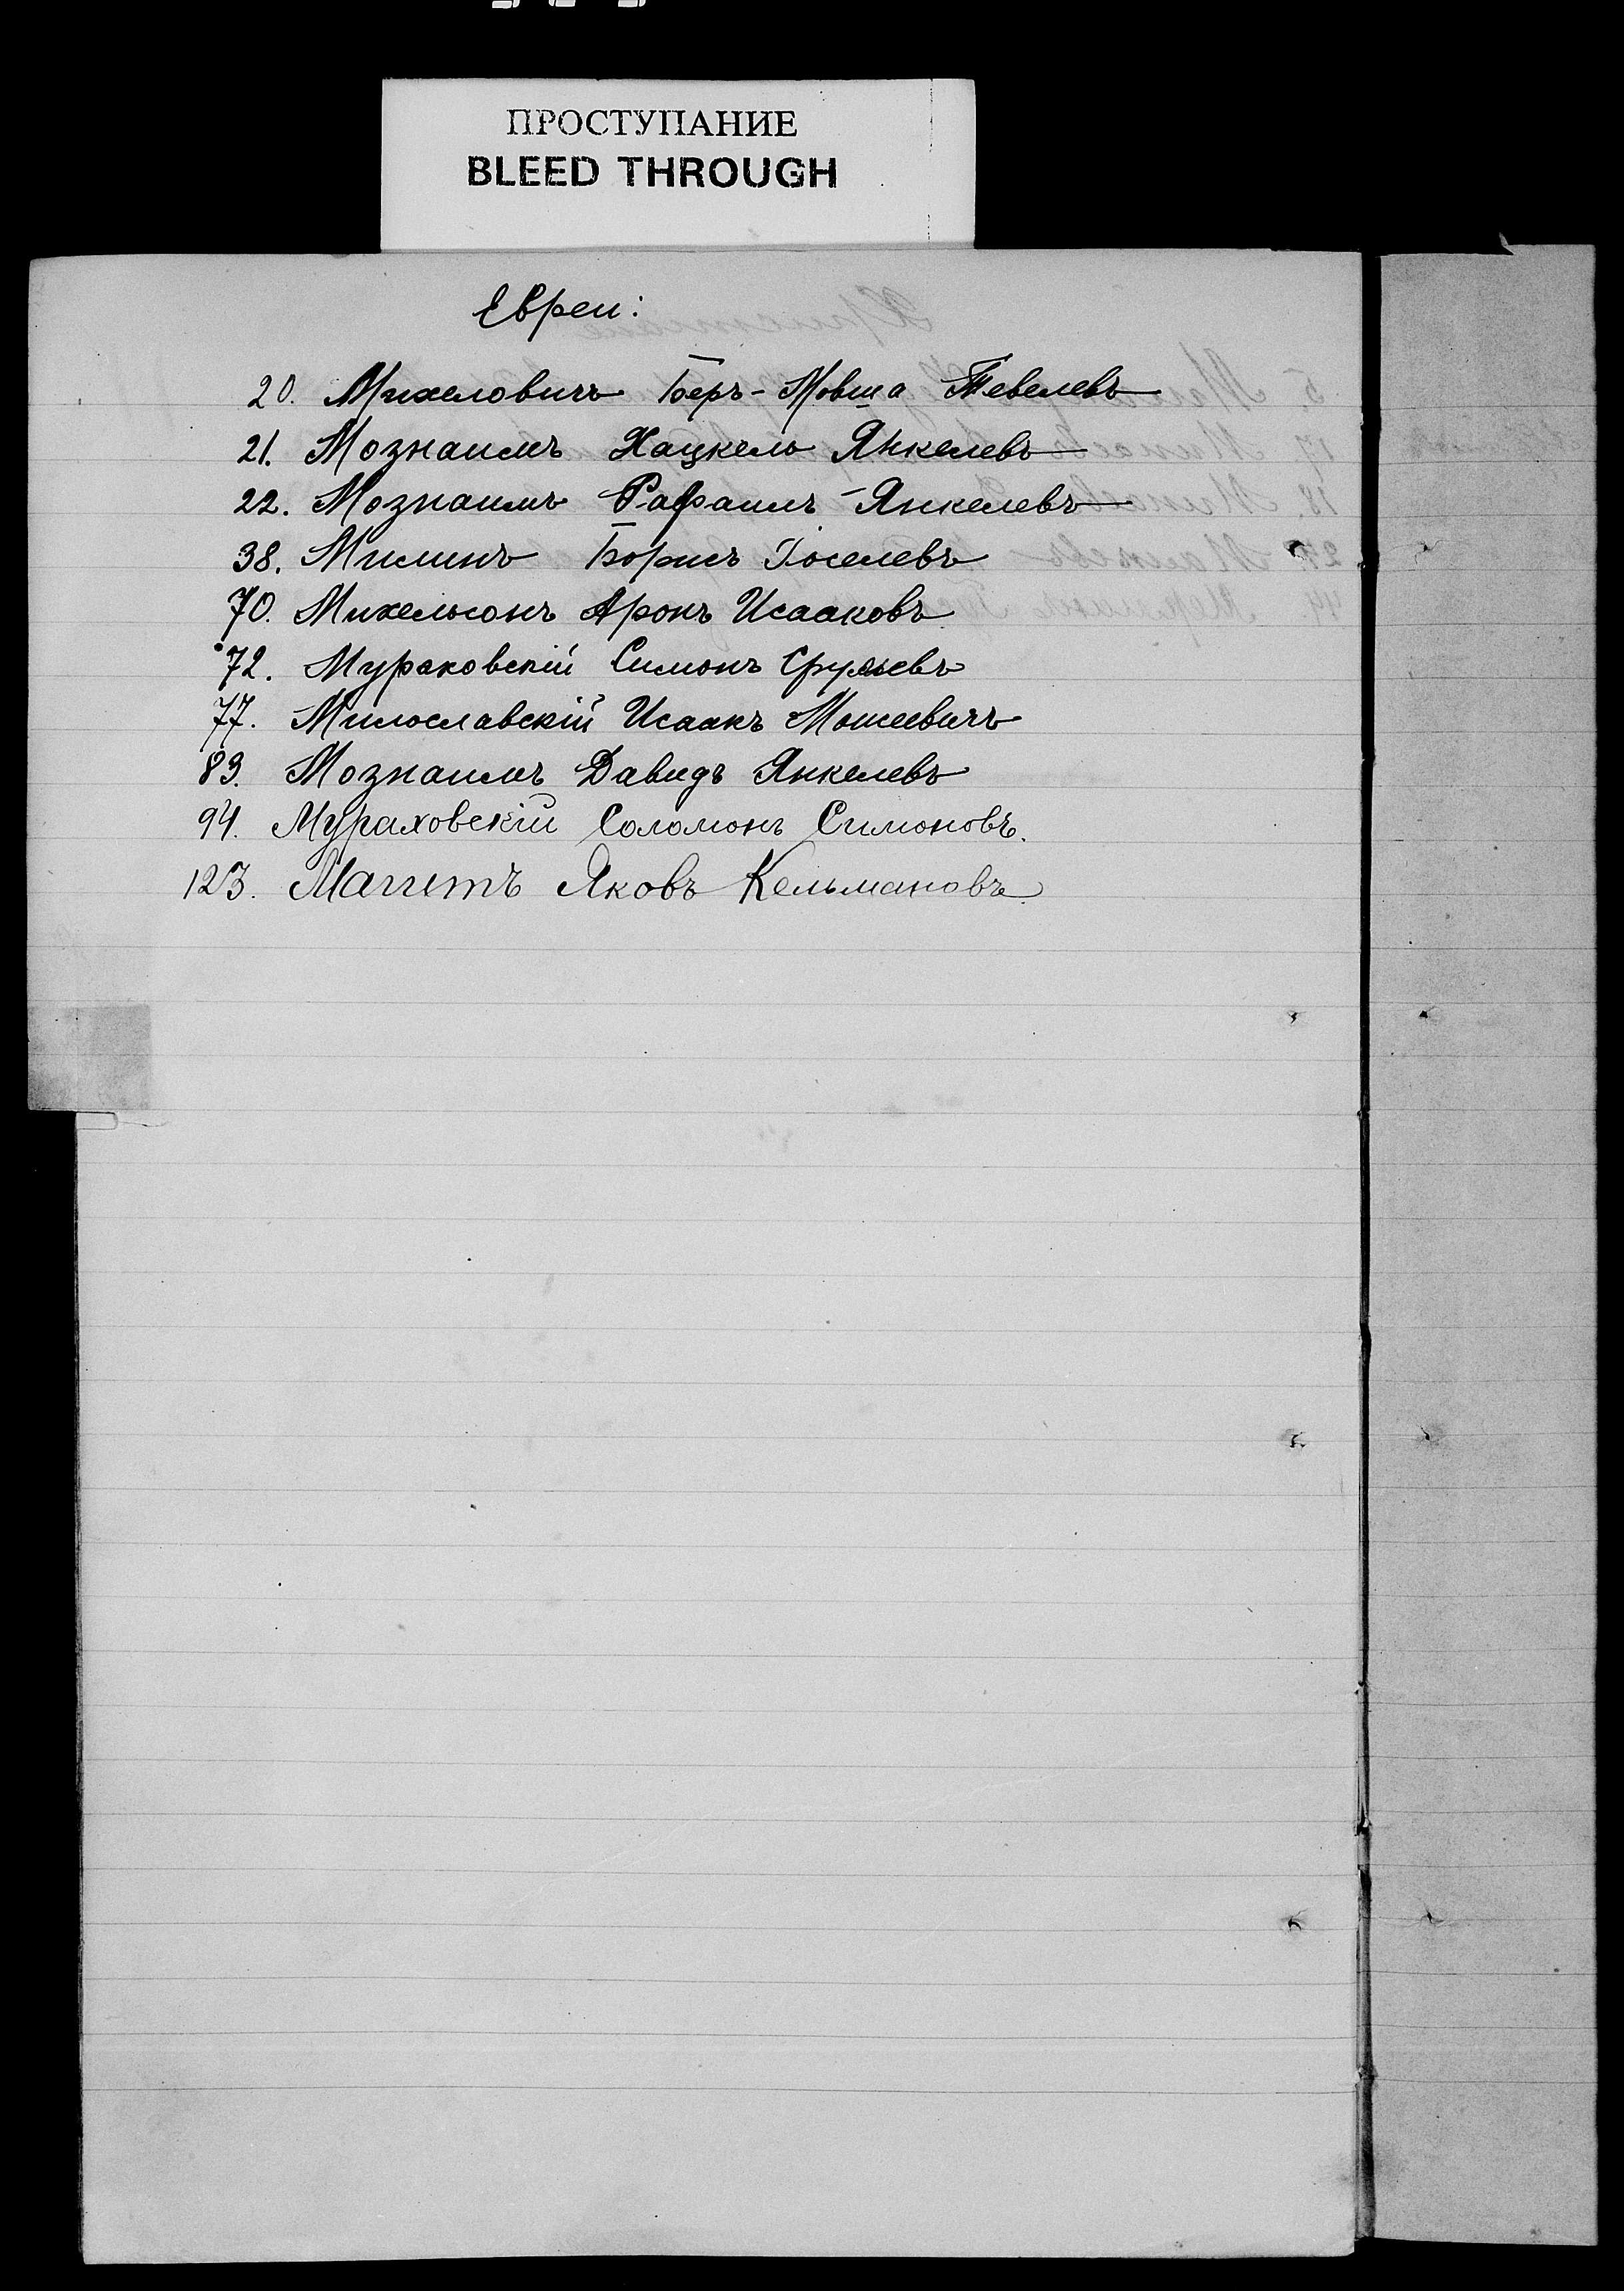 ПРОСТУПАНИЕ
BLEED THROUGH
Евреи:
20. Михеловичъ Беръ-Мовша Тевелевъ
21. Мознаимъ Хацкель Янкелевъ
22. Мознаимъ Рафаилъ Янкелевъ
38. Милинъ Борисъ Іоселевъ
70. Михельсонъ Аронъ Исааковъ
72. Мураховскій Симонъ Срулевъ
77. Милославскій Исаакъ Мошеевичъ
83. Мознаимъ Давидъ Янкелевъ
94. Мураховскій Соломонъ Симоновъ.
123. Яковъ Кельмановъ.